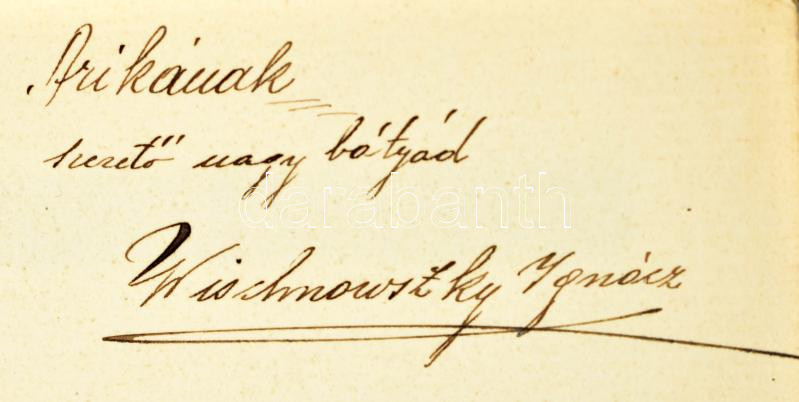 Arikának
szerető nagy bátyád
darabanth
Wischnowszky Ignácz